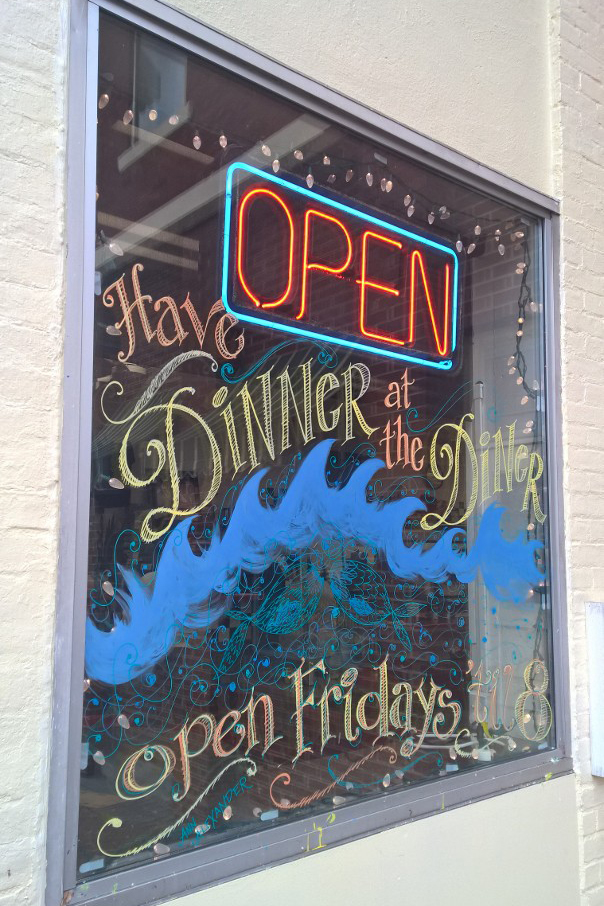 OPEN
Have
DINNER at
the DINER
open Fridays 'till 8
ANN
ALEXANDER